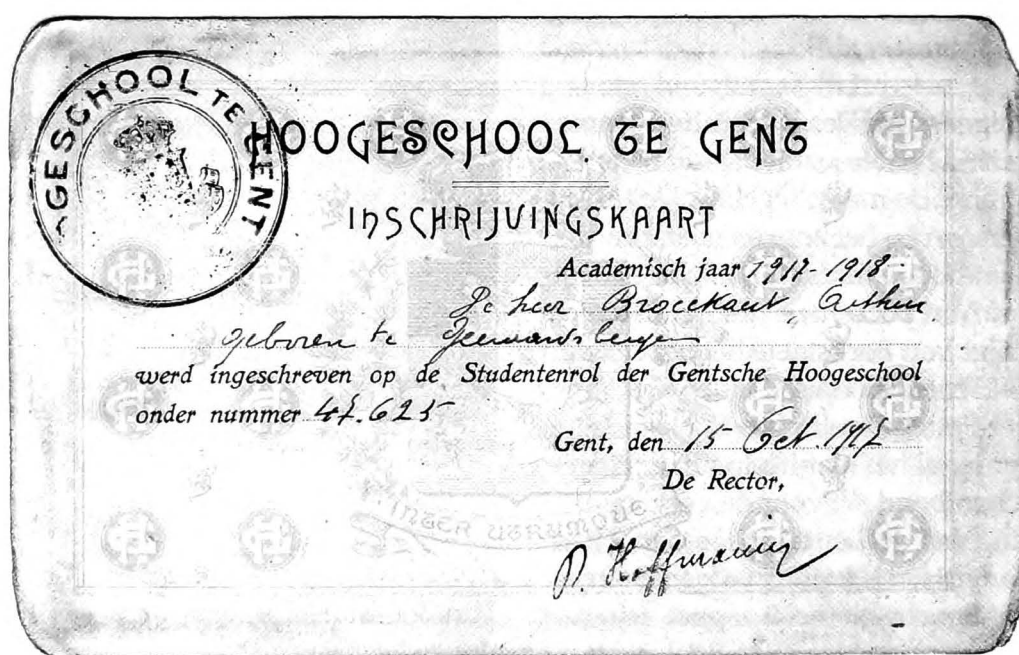 HOOGESCHOOL TE GENT
HOOGESCHOOL TE GENT
INSCHRIJVINGSKAART
Academisch jaar 1917-1918
De heer Broeckaert, Arthur
geboren te Geeraardsbergen
werd ingeschreven op de Studentenrol der Gentsche Hoogeschool
onder nummer 47.625
Gent, den 15 Oct. 1917
De Rector,
P. Hoffmann
INTER UTRUMQUE